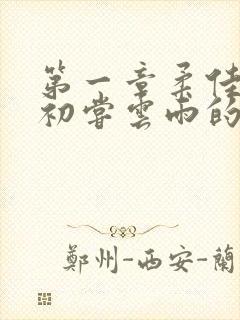 第一章柔佳
初嘗雲雨的
鄭州-西安-蘭